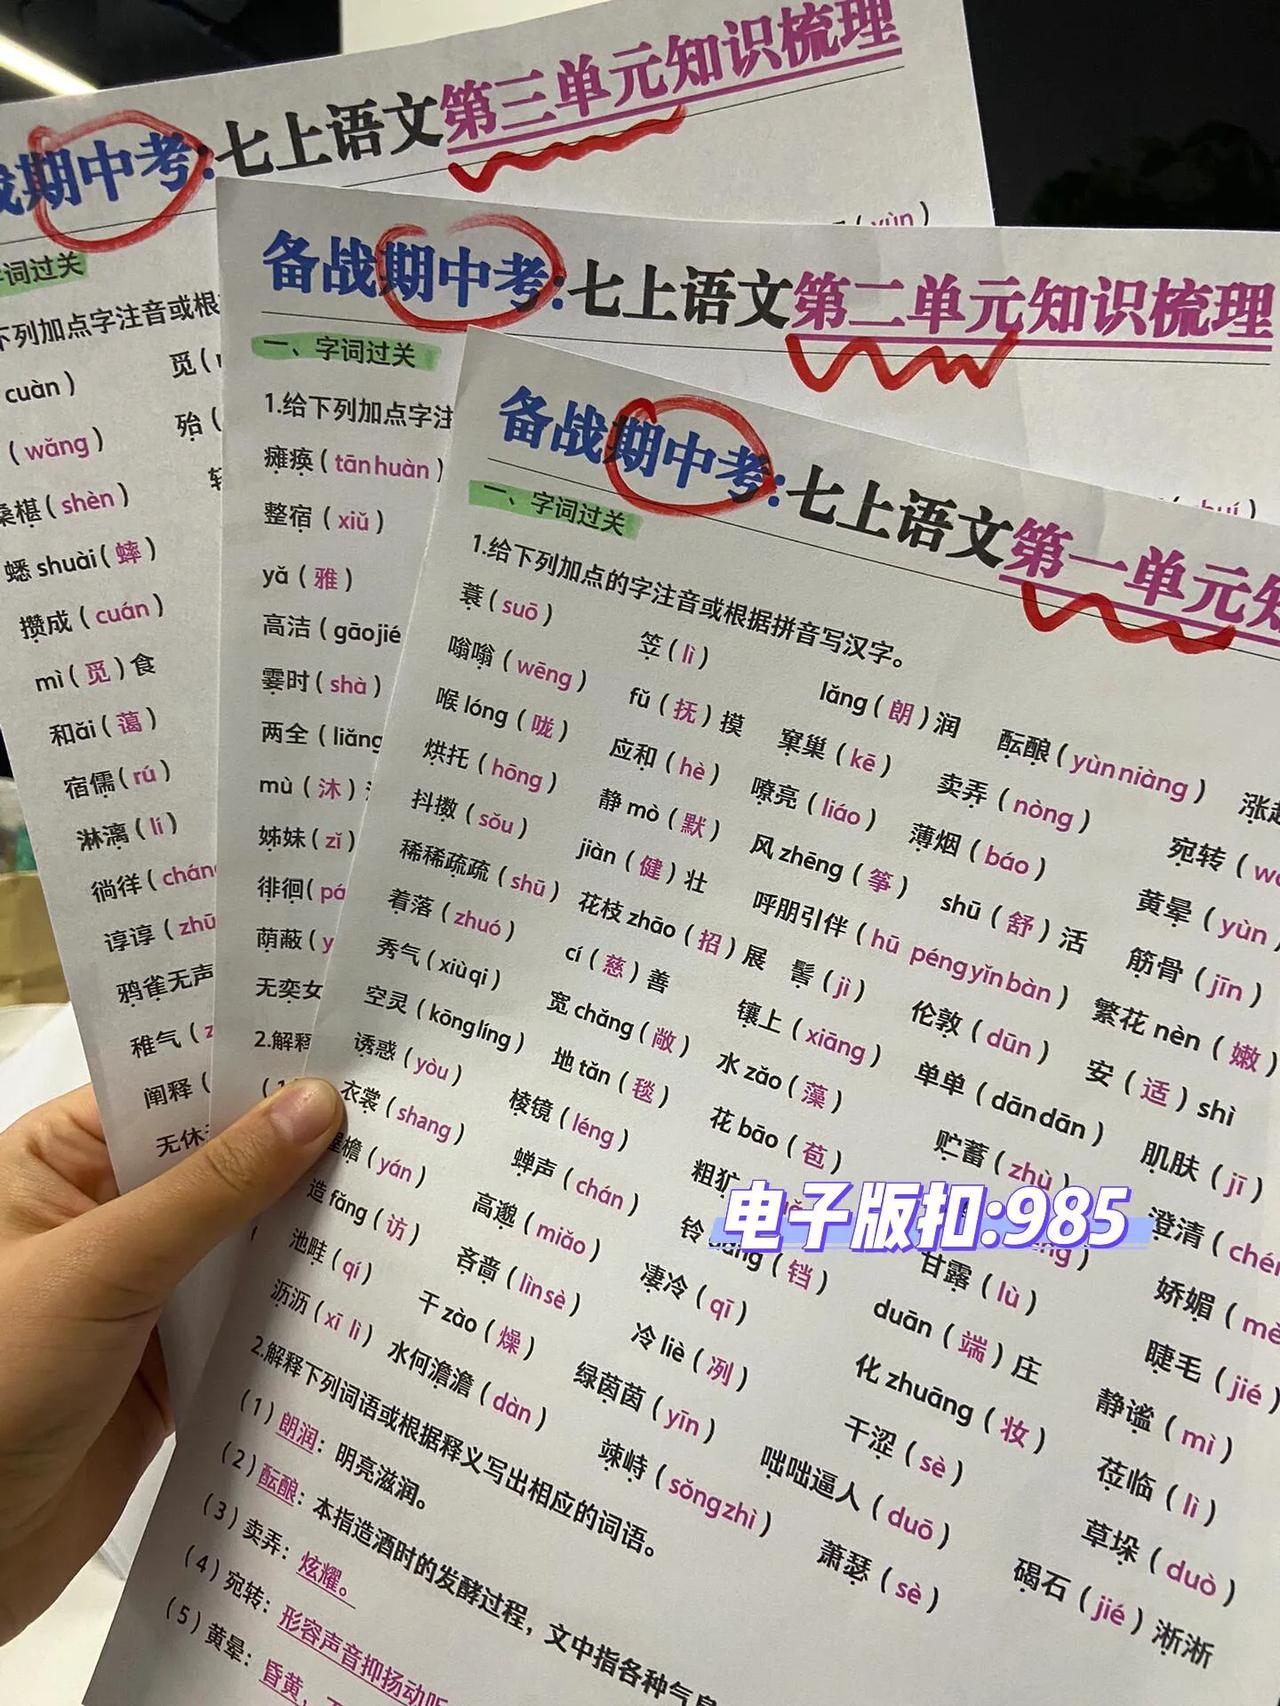 战期中考:七上语文第三单元知识梳理
字词过关
下列加点字注音或根
cuàn)
觅(
(wǎng)
殆(
桑椹(shèn)
蟋shuài(蟀)
攒成(cuán)
mì(觅)食
和ǎi(蔼)
宿儒(rú)
淋漓(lí)
徜徉(cháng
谆谆(zhū
鸦雀无声
稚气(z
阐释(
无休
(yùn)
备战期中考:七上语文第二单元知识梳理
一、字词过关
1.给下列加点字注
瘫痪(tān huàn)
整宿(xiǔ)
yǎ(雅)
高洁(gāo jié
霎时(shà)
两全(liǎng
mù(沐)
姊妹(zǐ)
徘徊(pá
荫蔽(y
无奕女
2.解释
(1
备战期中考:七上语文第一单元知
一、字词过关
1.给下列加点的字注音或根据拼音写汉字。
蓑(suō) 笠(lì) lǎng(朗)润 酝酿(yùn niàng) 涨
嗡嗡(wēng) fǔ(抚)摸 窠巢(kē) 卖弄(nòng) 宛转(wǎ
喉lóng(咙) 应和(hè) 嘹亮(liáo) 薄烟(báo) 黄晕(yùn)
烘托(hōng) 静mò(默) 风zhēng(筝) shū(舒)活 筋骨(jīn)
抖擞(sǒu) jiàn(健)壮 呼朋引伴(hū péng yǐn bàn) 繁花nèn(嫩)
稀稀疏疏(shū) 花枝zhāo(招)展 髻(jì) 伦敦(dūn) 安(适)shì
着落(zhuó) cí(慈)善 镶上(xiāng) 单单(dān dān) 肌肤(jī)
秀气(xiù qi) 宽chǎng(敞) 水zǎo(藻) 贮蓄(zhù) 澄清(chén
空灵(kōng líng) 地tǎn(毯) 花bāo(苞) 娇媚(mè
诱惑(yòu) 棱镜(léng) 粗犷 甘露(lù) 睫毛(jié)
衣裳(shang) 蝉声(chán) 铃 (铛) duān(端)庄 静谧(mì)
檐(yán) 高邈(miǎo) 凄冷(qī) 化zhuāng(妆) 莅临(lì)
造fǎng(访) 吝啬(lìn sè) 冷liè(冽) 干涩(sè) 草垛(duò)
池畦(qí) 干zào(燥) 绿茵茵(yīn) 咄咄逼人(duō) 碣石(jié) 淅淅
沥沥(xī lì) 水何澹澹(dàn) 竦峙(sǒng zhì) 萧瑟(sè)
2.解释下列词语或根据释义写出相应的词语。
(1)朗润:明亮滋润。
(2)酝酿:本指造酒时的发酵过程,文中指各种气息
(3)卖弄:炫耀。
(4)宛转:形容声音抑扬动听
(5)黄晕:昏黄,不
电子版扣:985